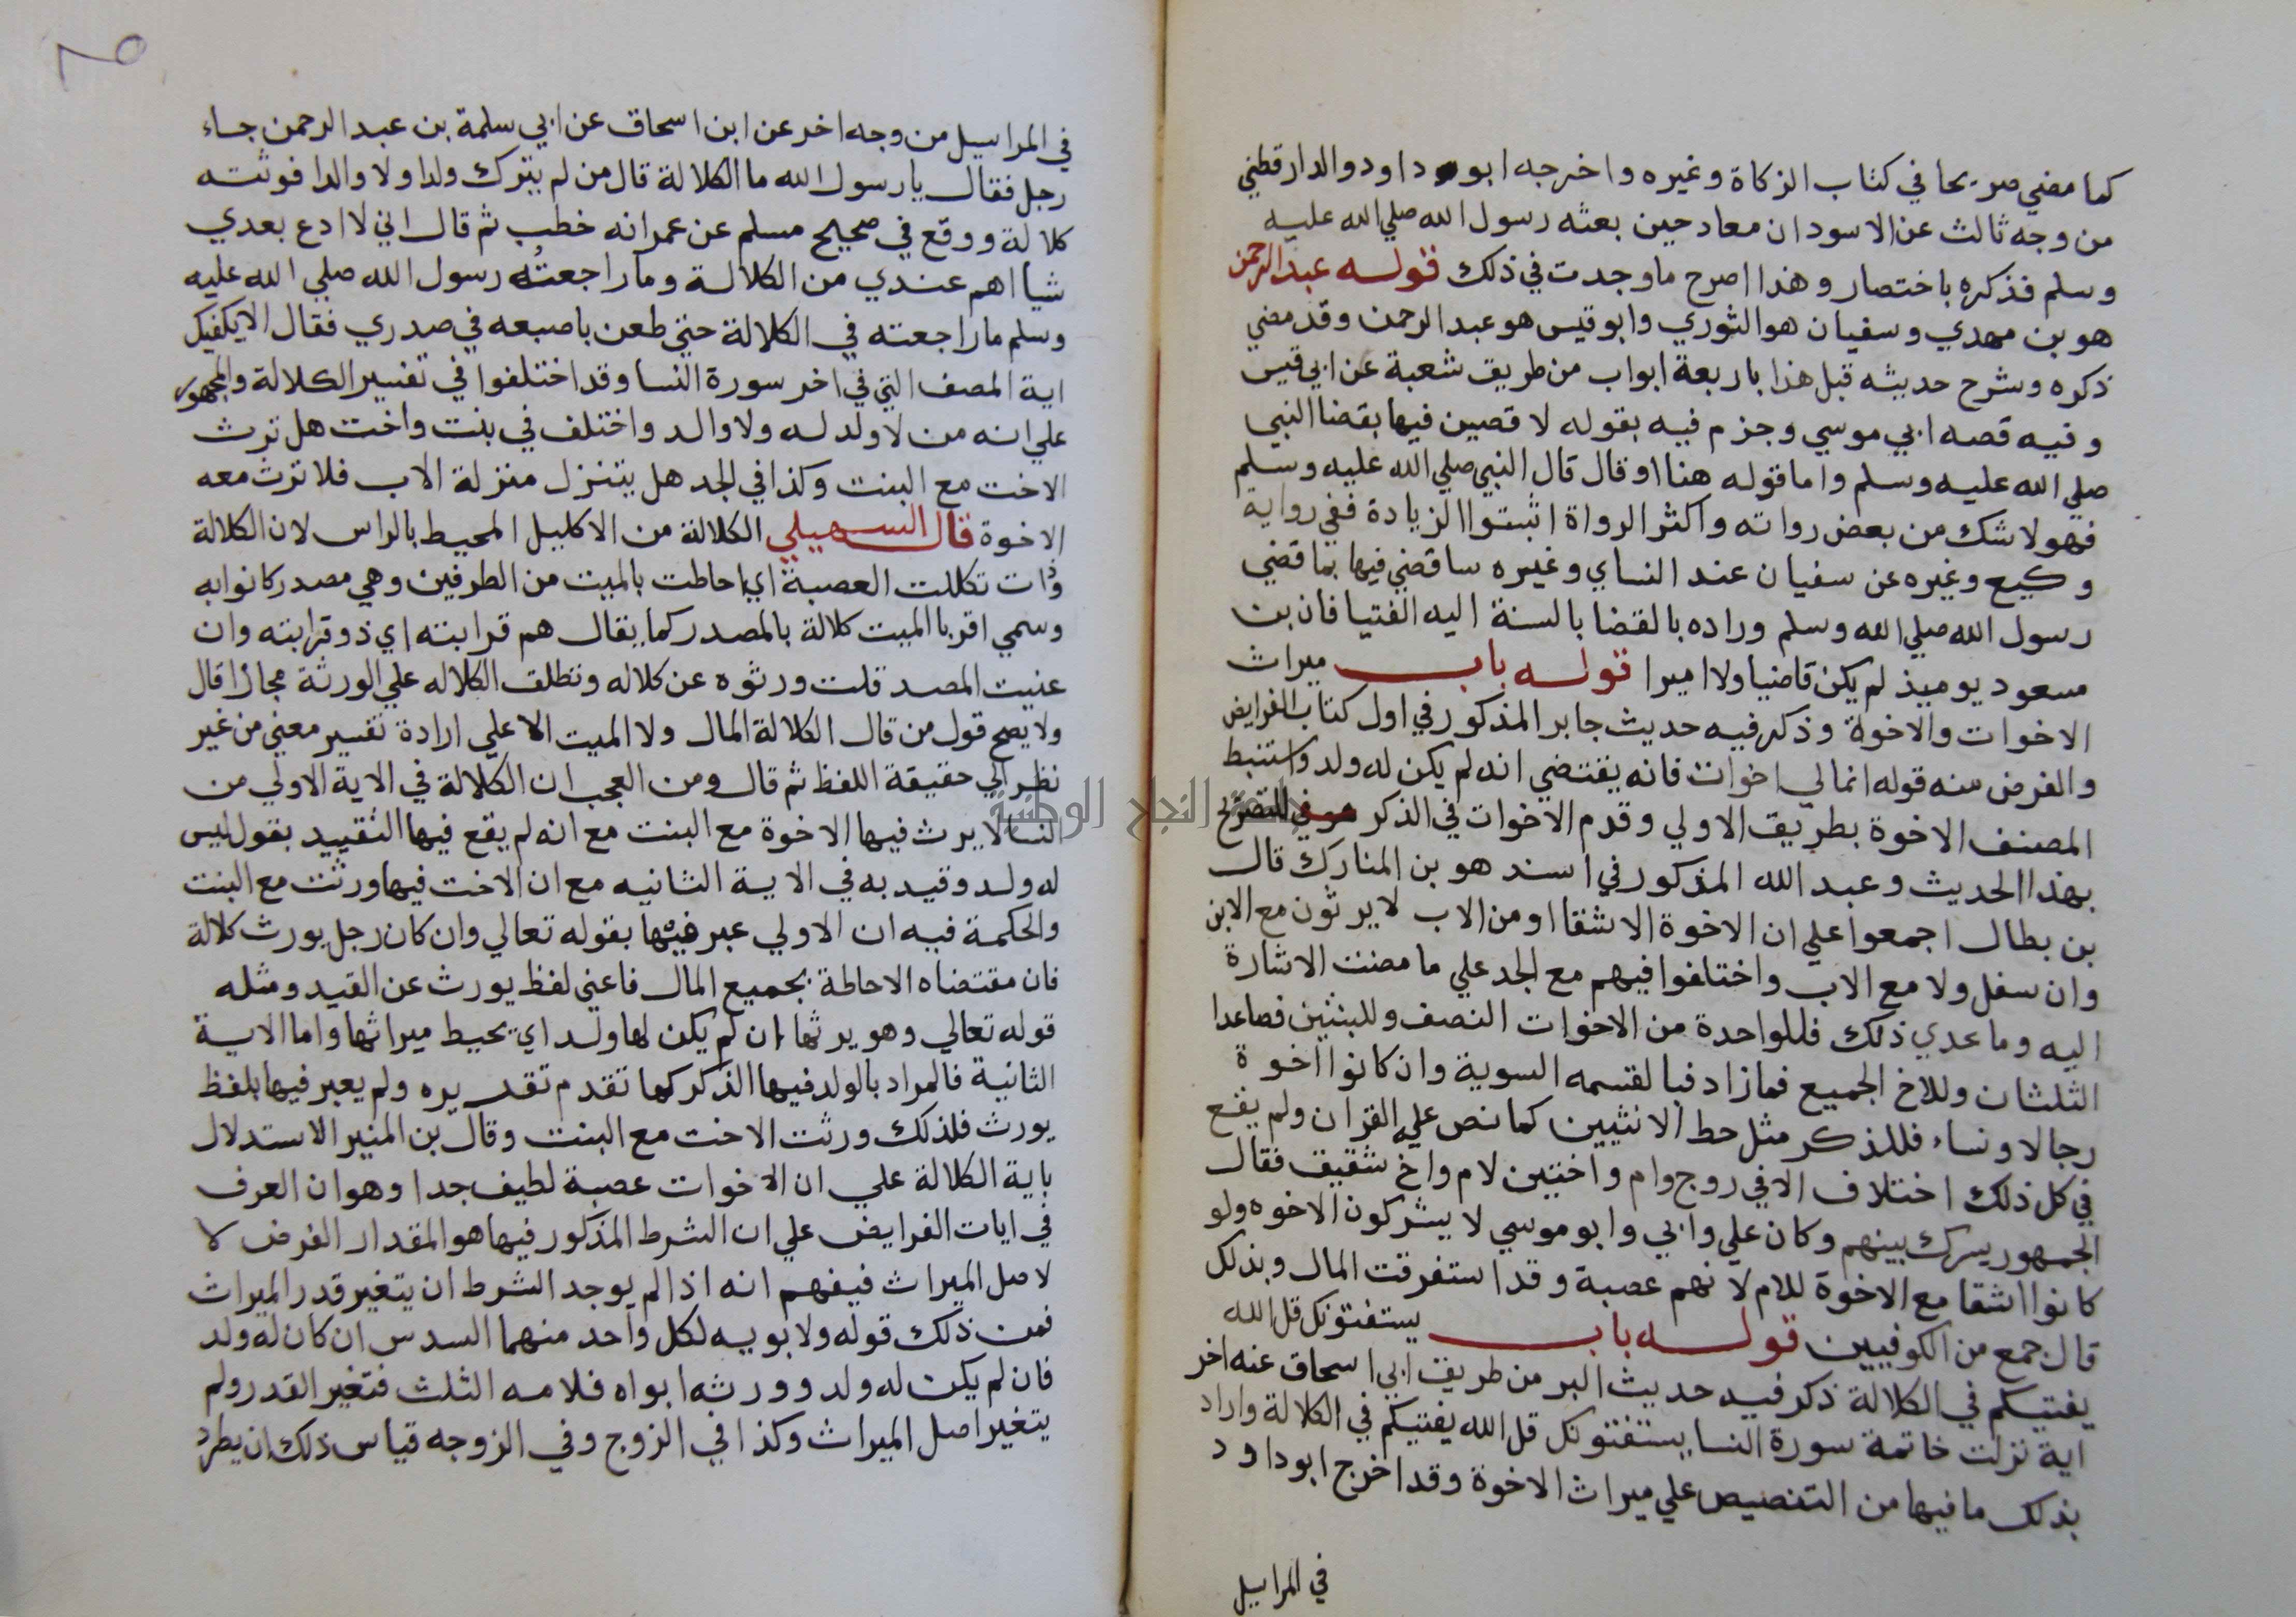 كما مضي صريحا في كتاب الزكاة وغيره واخرجه ابو داود والدارقطني
من وجه ثالث عن الاسود ان معاد حين بعثه رسول الله صلي الله عليه
وسلم فذكره باختصار وهذا اصرح ما وجدت في ذلك قوله عبد الرحمن
هو بن مهدي وسفيان هو الثوري وابو قيس هو عبد الرحمن وقد مضي
ذكره وشرح حديثه قبل هذا باربعة ابواب من طريق شعبة عن ابي قيس
وفيه قصه ابي موسي وجزم فيه بقوله لاقصين فيها بقضا النبي
صلي الله عليه وسلم واما قوله هنا او قال قال النبي صلي الله عليه وسلم
فهو لا شك من بعض رواته واكثر الرواة اثبتوا الزيادة ففي رواية
وكيع وغيره عن سفيان عند النساي وغيره ساقضي فيها بما قضي
رسول الله صلي الله وسلم وراده بالقضا بالسنة اليه الفتيا فان بن
مسعود يوميذ لم يكن قاضيا ولا اميرا قوله باب ميراث
الاخوات والاخوة وذكر فيه حديث جابر المذكور في اول كتاب الفرايض
والغرض منه قوله انما لي اخوات فانه يقتضي انه لم يكن له ولد واستنبط
المصنف الاخوة بطريق الاولي وقدم الاخوات في الذكر للتصريح
بهذا الحديث وعبد الله المذكور في اسند هو بن المنارك قال
بن بطال اجمعوا علي ان الاخوة الاشقا او من الاب لا يرثون مع الابن
وان سفل ولا مع الاب واختلفوا فيهم مع الجد علي ما مضت الاشارة
اليه وما عدي ذلك فللواحدة من الاخوات النصف وللبنتين فصاعدا
الثلثان وللاخ الجميع فما زاد فبالقسمه السوية وان كانوا اخوة
رجالا ونساء فللذكر مثل حط الانثيين كما نص علي القران ولم يقع
في كل ذلك اختلاف الا في روج وام واختين لام واخ شقيق فقال
الجمهور يسرك بينهم وكان علي وابي وابو موسي لا يشركون الاخوه ولو
كانوا اشقا مع الاخوة للام لانهم عصبة وقد استفرقت المال وبذلك
قال جمع من الكوفيين قوله باب يستفتونك قل الله
يفتيكم في الكلالة ذكر فيه حديث البر من طريق ابي اسحاق عنه اخر
اية نزلت خاتمة سورة النسا يستفتونك قل الله يفتيكم في الكلالة واراد
بذلك ما فيها من التنصيص علي ميراث الاخوة وقد اخرج ابو داود
في المراسيل
في المراسيل من وجه اخر عن ابن اسحاق عن ابي سلمة بن عبد الرحمن جاء
رجل فقال يا رسول الله ما الكلالة قال من لم يترك ولدا ولا والدا فوثته
كلالة ووقع في صحيح مسلم عن عمر انه خطب ثم قال اني لا ادع بعدي
شيا اهم عندي من الكلالة وما راجعته رسول الله صلي الله عليه
وسلم ما راجعته في الكلالة حتي طعن باصبعه في صدري فقال الا يكفيك
اية المصف التي في اخر سورة النسا وقد اختلفوا في تفسير الكلالة والجمهور
علي انه من لا ولد له ولا والد واختلف في بنت واخت هل ترث
الاخت مع البنت وكذا في الجد هل يتنزل منزلة الاب فلا ترث معه
الاخوة قال السهيلي الكلالة من الاكليل المحيط بالراس لان الكلالة
وات تكللت العصبة اي احاطت بالميت من الطرفين وهي مصدر كانوا به
وسمي اقربا الميت كلالة بالمصدر كما يقال هم قرابته اي ذو قرابته وان
عنيت المصد قلت ورثوه عن كلاله وتطلق الكلاله علي الورثة مجازا قال
ولا يصح قول من قال الكلالة المال ولا الميت الا علي ارادة تفسير معني من غير
نظر الي حقيقة اللفظ ثم قال ومن العجب ان الكلالة في الاية الاولي من
النسا لا يرث فيها الاخوة مع البنت مع انه لم يقع فيها التقييد بقول ليس
له ولد وقيد به في الاية الثانيه مع ان الاخت فيها ورثت مع البنت
والحكمة فيه ان الاولي عبر فيها بقوله تعالي وان كان رجل يورث كلالة
فان مقتضاه الاحاطة بجميع المال فاغني لفظ يورث عن القيد ومثله
قوله تعالي وهو يرثها ان لم يكن لها ولد اي يحيط ميراثها واما الاية
الثانية فالمراد بالولد فيها الذكر كما تقدم تقديره ولم يعبر فيها بلفظ
يورث فلذلك ورثت الاخت مع البنت وقال بن المنير الاستدلال
باية الكلالة علي ان الاخوات عصبة لطيف جدا وهو ان العرف
في ايات الفرايض علي ان الشرط المذكور فيها هو المقدار الفرض لا
لاصل الميراث فيفهم انه اذا لم يوجد الشرط ان يتغير قدر الميراث
فمن ذلك قوله ولابويه لكل واحد منهما السدس ان كان له ولد
فان لم يكن له ولد وورثه ابواه فلامه الثلث فتغير القدر ولم
يتغير اصل الميراث وكذا في الزوج وفي الزوجه قياس ذلك ان يطرد
جامعة النجاح الوطنية